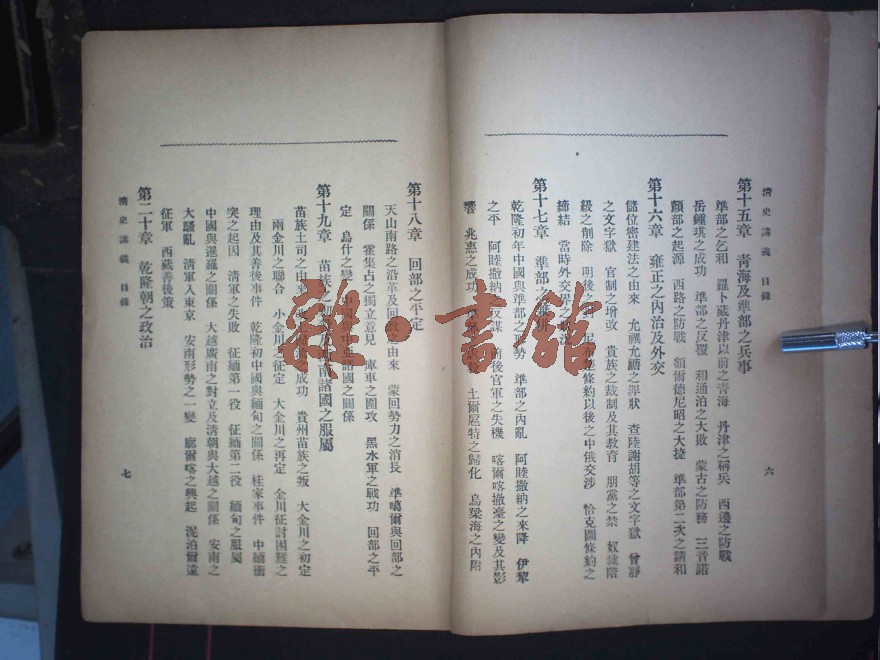 清史講義 目錄
六
第十五章 青海及準部之兵事
準部之乞和 羅卜藏丹津以前之青海 丹津之稱兵 西邊之防戰
岳鍾琪之成功 準部之反覆 和通泊之大敗 蒙古之防務 三音諾
顏部之起源 西路之防戰 額爾德尼昭之大捷 準部第二次之請和
第十六章 雍正之內治及外交
儲位密建法之由來 允禩允禟之罪狀 查陸謝胡等之文字獄 曾靜
之文字獄 官制之增改 貴族之裁制及其教育 朋黨之禁 奴隸階
級之削除 明後 布楚條約以後之中俄交涉 恰克圖條約之
締結 當時外交界之
第十七章 準部之
乾隆初年中國與準部之形勢 準部之內亂 阿睦撒納之來降 伊犂
之平 阿睦撒納之反謀 前後官軍之失機 喀爾喀撤臺之變及其影
響 兆惠之成功 土爾扈特之歸化 烏梁海之內附
第十八章 回部之平定
天山南路之沿革及回教之由來 蒙回勢力之消長 準噶爾與回部之
關係 霍集占之獨立意見 庫車之圍攻 黑水軍之戰功 回部之平
定 烏什之變 中亞諸國之關係
第十九章 苗族之 諸國之服屬
苗族土司之由來 成功 貴州苗族之叛 大金川之初定
兩金川之聯合 小金川之征定 大金川之再定 金川征討困難之
理由及其善後事件 乾隆初中國與緬甸之關係 桂家事件 中緬衝
突之起因 清軍之失敗 征緬第一役 征緬第二役 緬甸之服屬
中國與暹羅之關係 大越廣南之對立及清朝與大越之關係 安南之
大騷亂 清軍入東京 安南形勢之一變 廓爾喀之興起 泥泊爾遠
征軍 西藏善後策
第二十章 乾隆朝之政治
清史講義 目錄
七
雜·書館